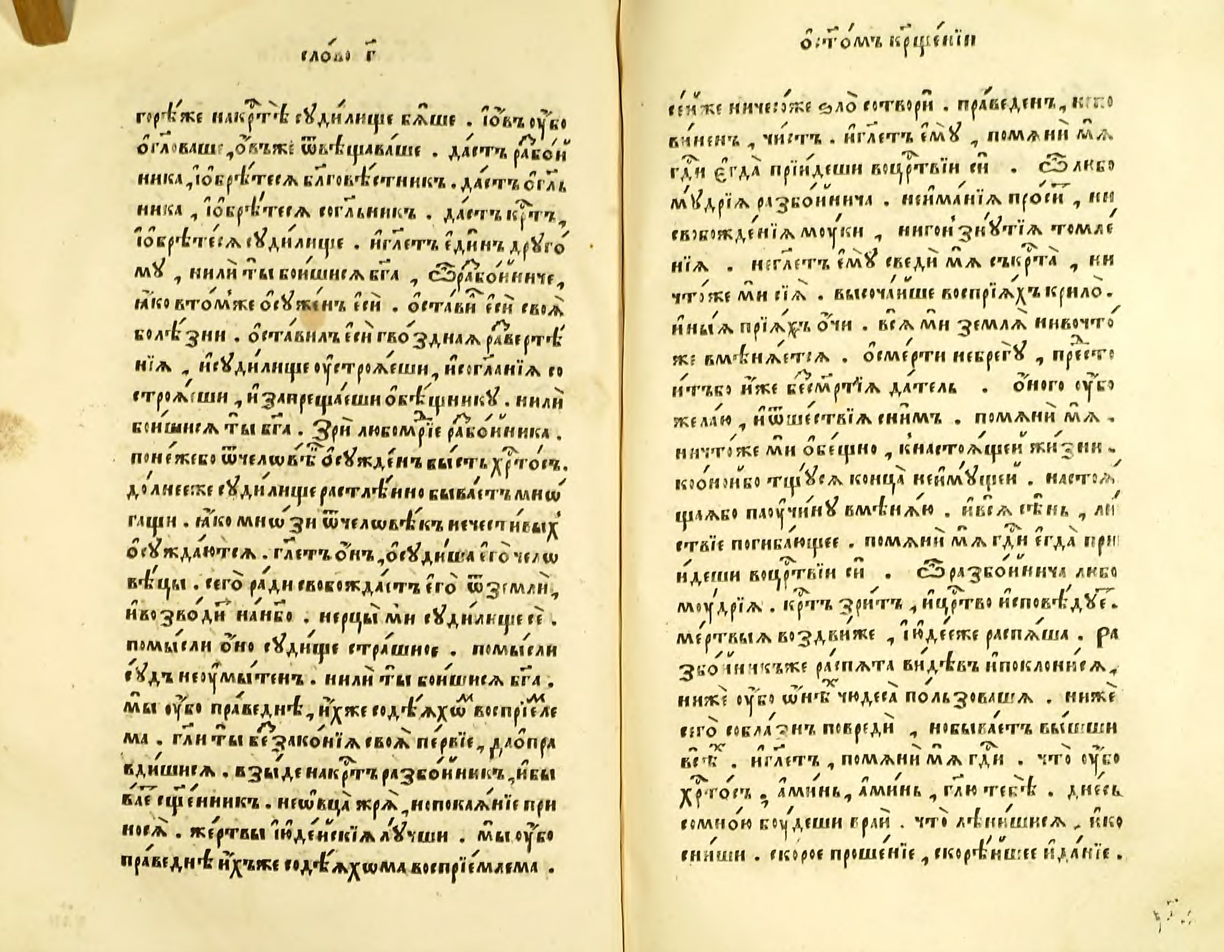 сло́во г҃
горѣ́же накрⷭ҇тѣ̀ сꙋди́лище бѧ́ше . і҆ѡ́въ ᲂу҆́бо
ѻ҆гл҃оваше, ѻ҆́въже ѿвѣщаваше . да́стъ раⷥбо́й
ника, і҆ѻбрѣ́тесѧ бл҃говѣ́стникъ . да́стъ ѻ҆гл҃ь
ника , і҆ѻбрѣ́тесѧ согл҃ьникъ . да́стъ крⷭ҇тъ,
і҆ѻбрѣ́тесѧ сꙋди́лище . и҆гл҃етъ є҆ди́нъ дрꙋго́
мꙋ , нилѝ ты̀ бои́шисѧ бг҃а , ѽ раⷥбо́йниче,
ꙗ҆́ко вто́мже ѻ҆сꙋже́нъ є҆сѝ . ѻ҆ста́вⷧиⷧ є҆сѝ своѧ̀
болѣ́зни . ѻ҆ста́вилъ є҆сѝ гво́зднаѧ раⷥвертѣ́
нїѧ , и҆сꙋди́лище ᲂу҆строѧ́еши, и҆согл҃анїѧ со
строѧ́еши , и҆запреща́еши ѻ҆бѣ́щникꙋ . нилѝ
бои́шисѧ ты̀ бг҃а . Зрѝ любомⷣрїе раⷥбо́йника .
поне́жебо ѿчеловⷦ҇ѣ ѻ҆сꙋжде́нъ бы́сть хрⷭ҇то́съ.
до́лнееже сꙋди́лище растлѣ́нно быва́етъ мнѡ́
гащи . ꙗ҆́ко мнѡ́зи ѿчеловѣ́къ нечести́выхъ
ѻ҆сꙋжда́ютсѧ . гл҃етъ ѻ҆́нъ, ѻ҆сꙋди́ша є҆го̀ чело
вѣ́цы . сего̀ ра́ди свобожда́етъ є҆го̀ ѿ землѝ,
и҆возво́диⷮ на́нбо . нерцы̀ мѝ сꙋди́лище сѐ .
помы́сли ѻ҆́но сꙋди́ще стра́шное . помы́сли
сꙋ́дъ неᲂу҆мы́тенъ . нилѝ ты̀ бои́шисѧ бг҃а .
мы̀ ᲂу҆́бо пра́веднѣ, и҆́хже содѣ́ѧхѡⷨ воспрїе́мле
ма . гл҃и ты̀ беⷥзако́нїѧ своѧ̀ пе́рвїе, даѻ҆пра
вди́шисѧ . взы́де накрⷭ҇тъ разбо́йникъ, и҆бы
ва́еⷮ сщ҃е́нникъ . неѻ҆вца̀ жрѧ̀, нопокаѧ́нїе при
носѧ̀ . же́ртвы і҆юде́йскїѧ лꙋ́чши . мы̀ ᲂу҆́бо
пра́веднѣ и҆́хъже содѣ́ѧхома воспрїе́млема .
ѻ҆ст҃о́мъ крⷳ҇ще́нїи
се́йже ничесо́же ѕло̀ сотворѝ . пра́веденъ,
ви́ненъ , чи́стъ . и҆гл҃етъ є҆мꙋ̀ , помѧнѝ мѧ̀
гдⷭ҇и є҆гда̀ прїи́деши воцрⷭ҇твїи сѝ . Ѽ либо
мꙋ́дрїѧ разбо́йнича . неи҆мѣ́нїѧ проситъ , ни
свобожде́нїѧ мо́уки , нигоньзнꙋ́тїѧ томле́
нїѧ . негл҃етъ є҆мꙋ̀ сведѝ мѧ̀ съкрⷭ҇та̀ , ни
что́же мѝ сїѧ̀ . высоча́йше воспрїѧ́хъ крило̀ .
и҆ны́ѧ прїѧ́хъ ѻ҆́чи . всѧ̀ мѝ землѧ̀ нивочто́
же вмѣнѧ́етсѧ . ѻ҆сме́рти небрегꙋ̀ , престо
и҆тъбо и҆́же бесме́ртїѧ да́тель . ѻ҆́ного ᲂу҆́бо
жела́ю , и҆ѿше́ствїѧ сни́мъ . помѧнѝ мѧ̀ .
ничто́же мѝ ѻ҆́бещно , кнастоѧ́щей жи́зни .
тщꙋ́сѧ конца̀ неимꙋ́щей . настоѧ́
щаѧбо паᲂучи́нꙋ вмѣнѧ́ю . и҆всѧ̀ сѣ́нь , ли́
ствїе погиба́ющее . помѧнѝ мѧ̀ гдⷭ҇и є҆гда̀ прі
и́деши воцрⷭ҇твїи сѝ . Ѽ разбо́йнича либо
моу́дрїѧ . крⷭ҇тъ зри́тъ , и҆црⷭ҇тво и҆сповѣ́дꙋеⷮ .
ме́ртвыѧ воздви́же , і҆юде́еже распѧ́ша . Ра
збо́йникъже ра́спѧта ви́дѣвъ и҆поклони́сѧ,
нижѐ ᲂу҆́бо ѡ҆нѣⷯ чюдеса̀ по́льзоваша . нижѐ
сего̀ собла́знъ повредѝ , нобыва́етъ вы́шши
всѣⷯ . и҆гл҃етъ , помѧнѝ мѧ̀ гдⷭ҇и . что̀ ᲂу҆́бо
хрⷭ҇то́съ . а҆ми́нь, а҆ми́нь, гл҃ю тебѣ̀ . дне́сь
сомно́ю бо́удеши враѝ . что̀ лѣни́шисѧ ,
спи́ши . ско́рое проше́нїе , скорѣ́йшее и҆да́нїе .